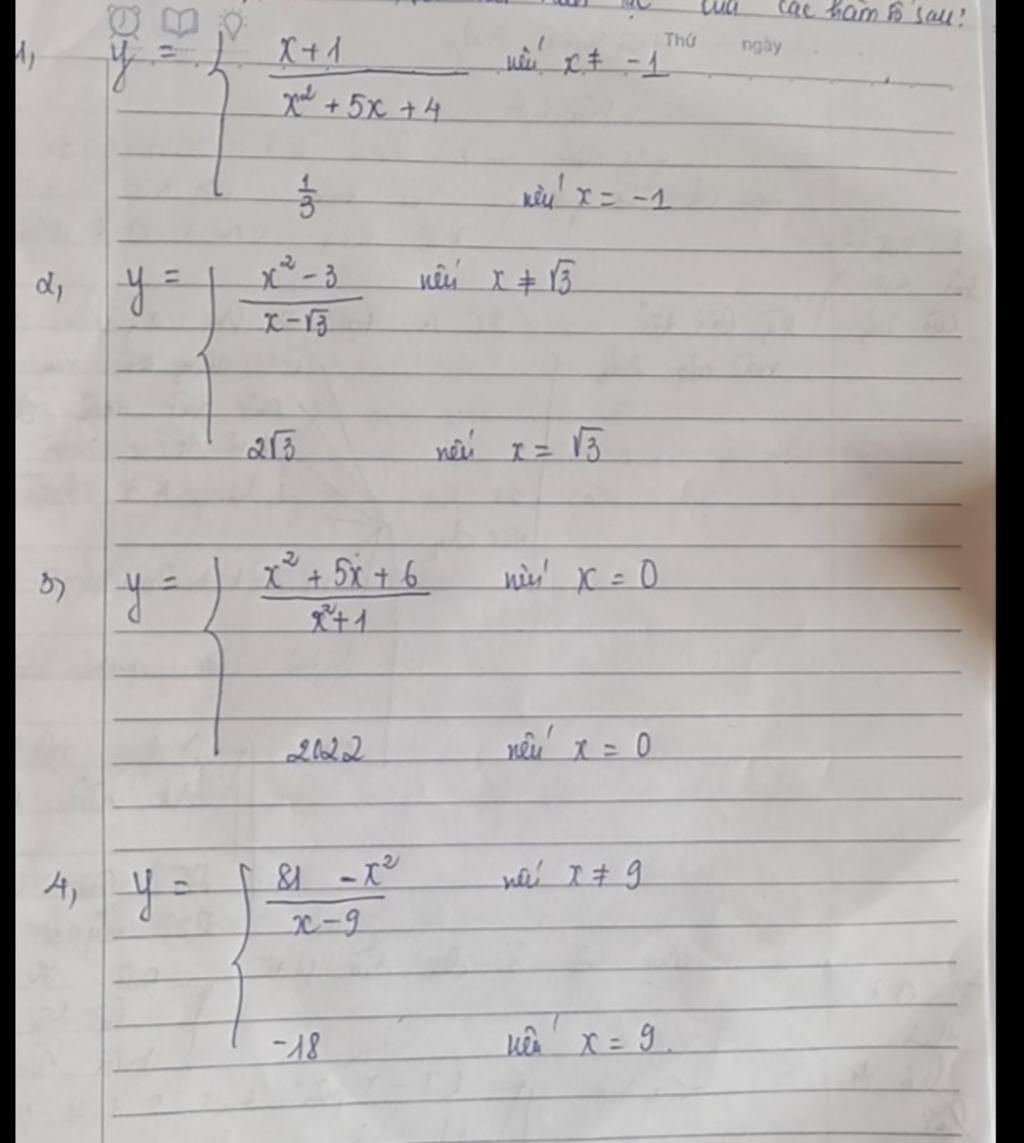 của các hàm số sau:
Thứ ngày
1, y = { x + 1 / x² + 5x + 4 nếu x ≠ -1
1/3 nếu x = -1
2, y = { x² - 3 / x - √3 nếu x ≠ √3
2√3 nếu x = √3
3) y = { x² + 5x + 6 / x² + 1 nếu x = 0
2022 nếu x = 0
4, y = { 81 - x² / x - 9 nếu x ≠ 9
-18 nếu x = 9.